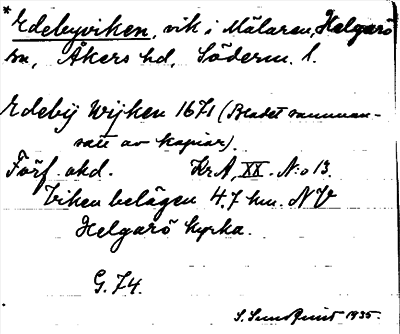 * Edebyviken, vik i Mälaren, Helgarö
sn, Åkers hd, Söderm. l.
Edebÿ Wijken 1671 (Bladet samman-
satt av kopior).
Förf. okd. Kr A, XX. N:o 13.
Viken belägen 4.7 km. NV
Helgarö kyrka.
G. 74.
S. Sundquist 1935.